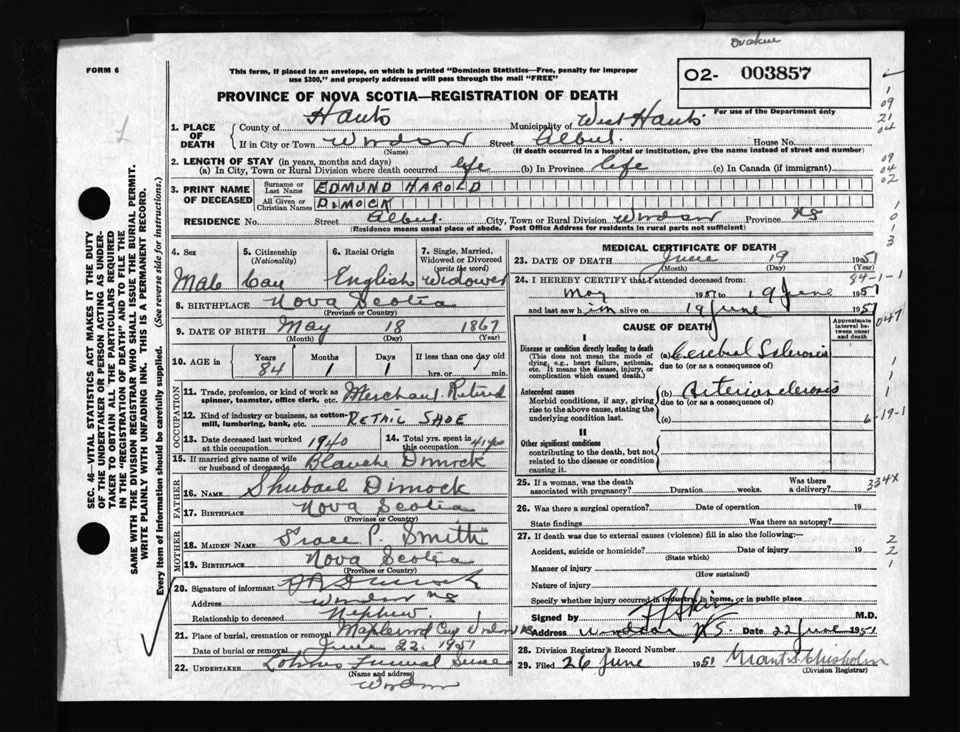 FORM 6
This form, if placed in an envelope, on which is printed "Dominion Statistics—Free, penalty for improper
use $300," and properly addressed will pass through the mail "FREE"
O2- 003857
For use of the Department only
PROVINCE OF NOVA SCOTIA—REGISTRATION OF DEATH
1. PLACE OF DEATH { County of Hants Municipality of West Hants
If in City or Town Windsor Street Albert House No.
(Name) (If death occurred in a hospital or institution, give the name instead of street and number)
2. LENGTH OF STAY (in years, months and days)
(a) In City, Town or Rural Division where death occurred life (b) In Province life (c) In Canada (if immigrant)
3. PRINT NAME OF DECEASED { Surname or Last Name EDMUND HAROLD
All Given or Christian Names DIMOCK
RESIDENCE No. Street Albert City, Town or Rural Division Windsor Province NS
(Residence means usual place of abode. Post Office Address for residents in rural parts not sufficient)
4. Sex Male
5. Citizenship (Nationality) Can
6. Racial Origin English
7. Single, Married, Widowed or Divorced (write the word) Widower
8. BIRTHPLACE Nova Scotia
(Province or Country)
9. DATE OF BIRTH May 18 1867
(Month) (Day) (Year)
10. AGE in Years 84 Months 1 Days 1 If less than one day old
hrs. or min.
OCCUPATION
11. Trade, profession, or kind of work as spinner, teamster, office clerk, etc. Merchant Retired
12. Kind of industry or business, as cotton-mill, lumbering, bank, etc. RETAIL SHOE
13. Date deceased last worked at this occupation 1940
14. Total yrs. spent in this occupation
15. If married give name of wife or husband of deceased Blanche Dimock
FATHER
16. NAME Shubael Dimock
17. BIRTHPLACE Nova Scotia
(Province or Country)
MOTHER
18. MAIDEN NAME P. Smith
19. BIRTHPLACE Nova Scotia
(Province or Country)
20. Signature of informant Dimock
Address Windsor NS
Relationship to deceased Nephew
21. Place of burial, cremation or removal Maplewood Windsor NS
Date of burial or removal June 22, 1951
22. UNDERTAKER Funeral
(Name and address)
Windsor
MEDICAL CERTIFICATE OF DEATH
23. DATE OF DEATH June 19 1951
(Month) (Day) (Year)
24. I HEREBY CERTIFY that I attended deceased from 84-1-1
May 1951 to 19 June 1951
and last saw him alive on 19 June 1951
CAUSE OF DEATH
Approximate interval between onset and death
I
Disease or condition directly leading to death
(This does not mean the mode of dying, e.g., heart failure, asthenia, etc. It means the disease, injury, or complication which caused death.)
(a) Cerebral Sclerosis
due to (or as a consequence of)
Antecedent causes
Morbid conditions, if any, giving rise to the above cause, stating the underlying condition last.
(b) Arteriosclerosis
due to (or as a consequence of)
(c) 6-19-1
II
Other significant conditions
contributing to the death, but not related to the disease or condition causing it.
25. If a woman, was the death associated with pregnancy? Duration weeks. Was there a delivery? 334X
26. Was there a surgical operation? Date of operation 19
State findings Was there an autopsy?
27. If death was due to external causes (violence) fill in also the following:—
Accident, suicide or homicide? Date of injury 19
(State which)
Manner of injury
(How sustained)
Nature of injury
Specify whether injury occurred in industry, in home, or in public place
Signed by M.D.
Address Windsor N.S. Date 22 June 1951
28. Division Registrar's Record Number
29. Filed 26 June 1951 Grant S. Chisholm
(Division Registrar)
SEC. 46—VITAL STATISTICS ACT MAKES IT THE DUTY
OF THE UNDERTAKER OR PERSON ACTING AS UNDER-
TAKER TO OBTAIN ALL THE PARTICULARS REQUIRED
IN THE "REGISTRATION OF DEATH" AND TO FILE THE
SAME WITH THE DIVISION REGISTRAR WHO SHALL ISSUE THE BURIAL PERMIT.
WRITE PLAINLY WITH UNFADING INK. THIS IS A PERMANENT RECORD.
Every item of information should be carefully supplied. (See reverse side for instructions.)
1
09
21
04
09
04
02
1
0
1
3
047
1
1
1
2
2
1